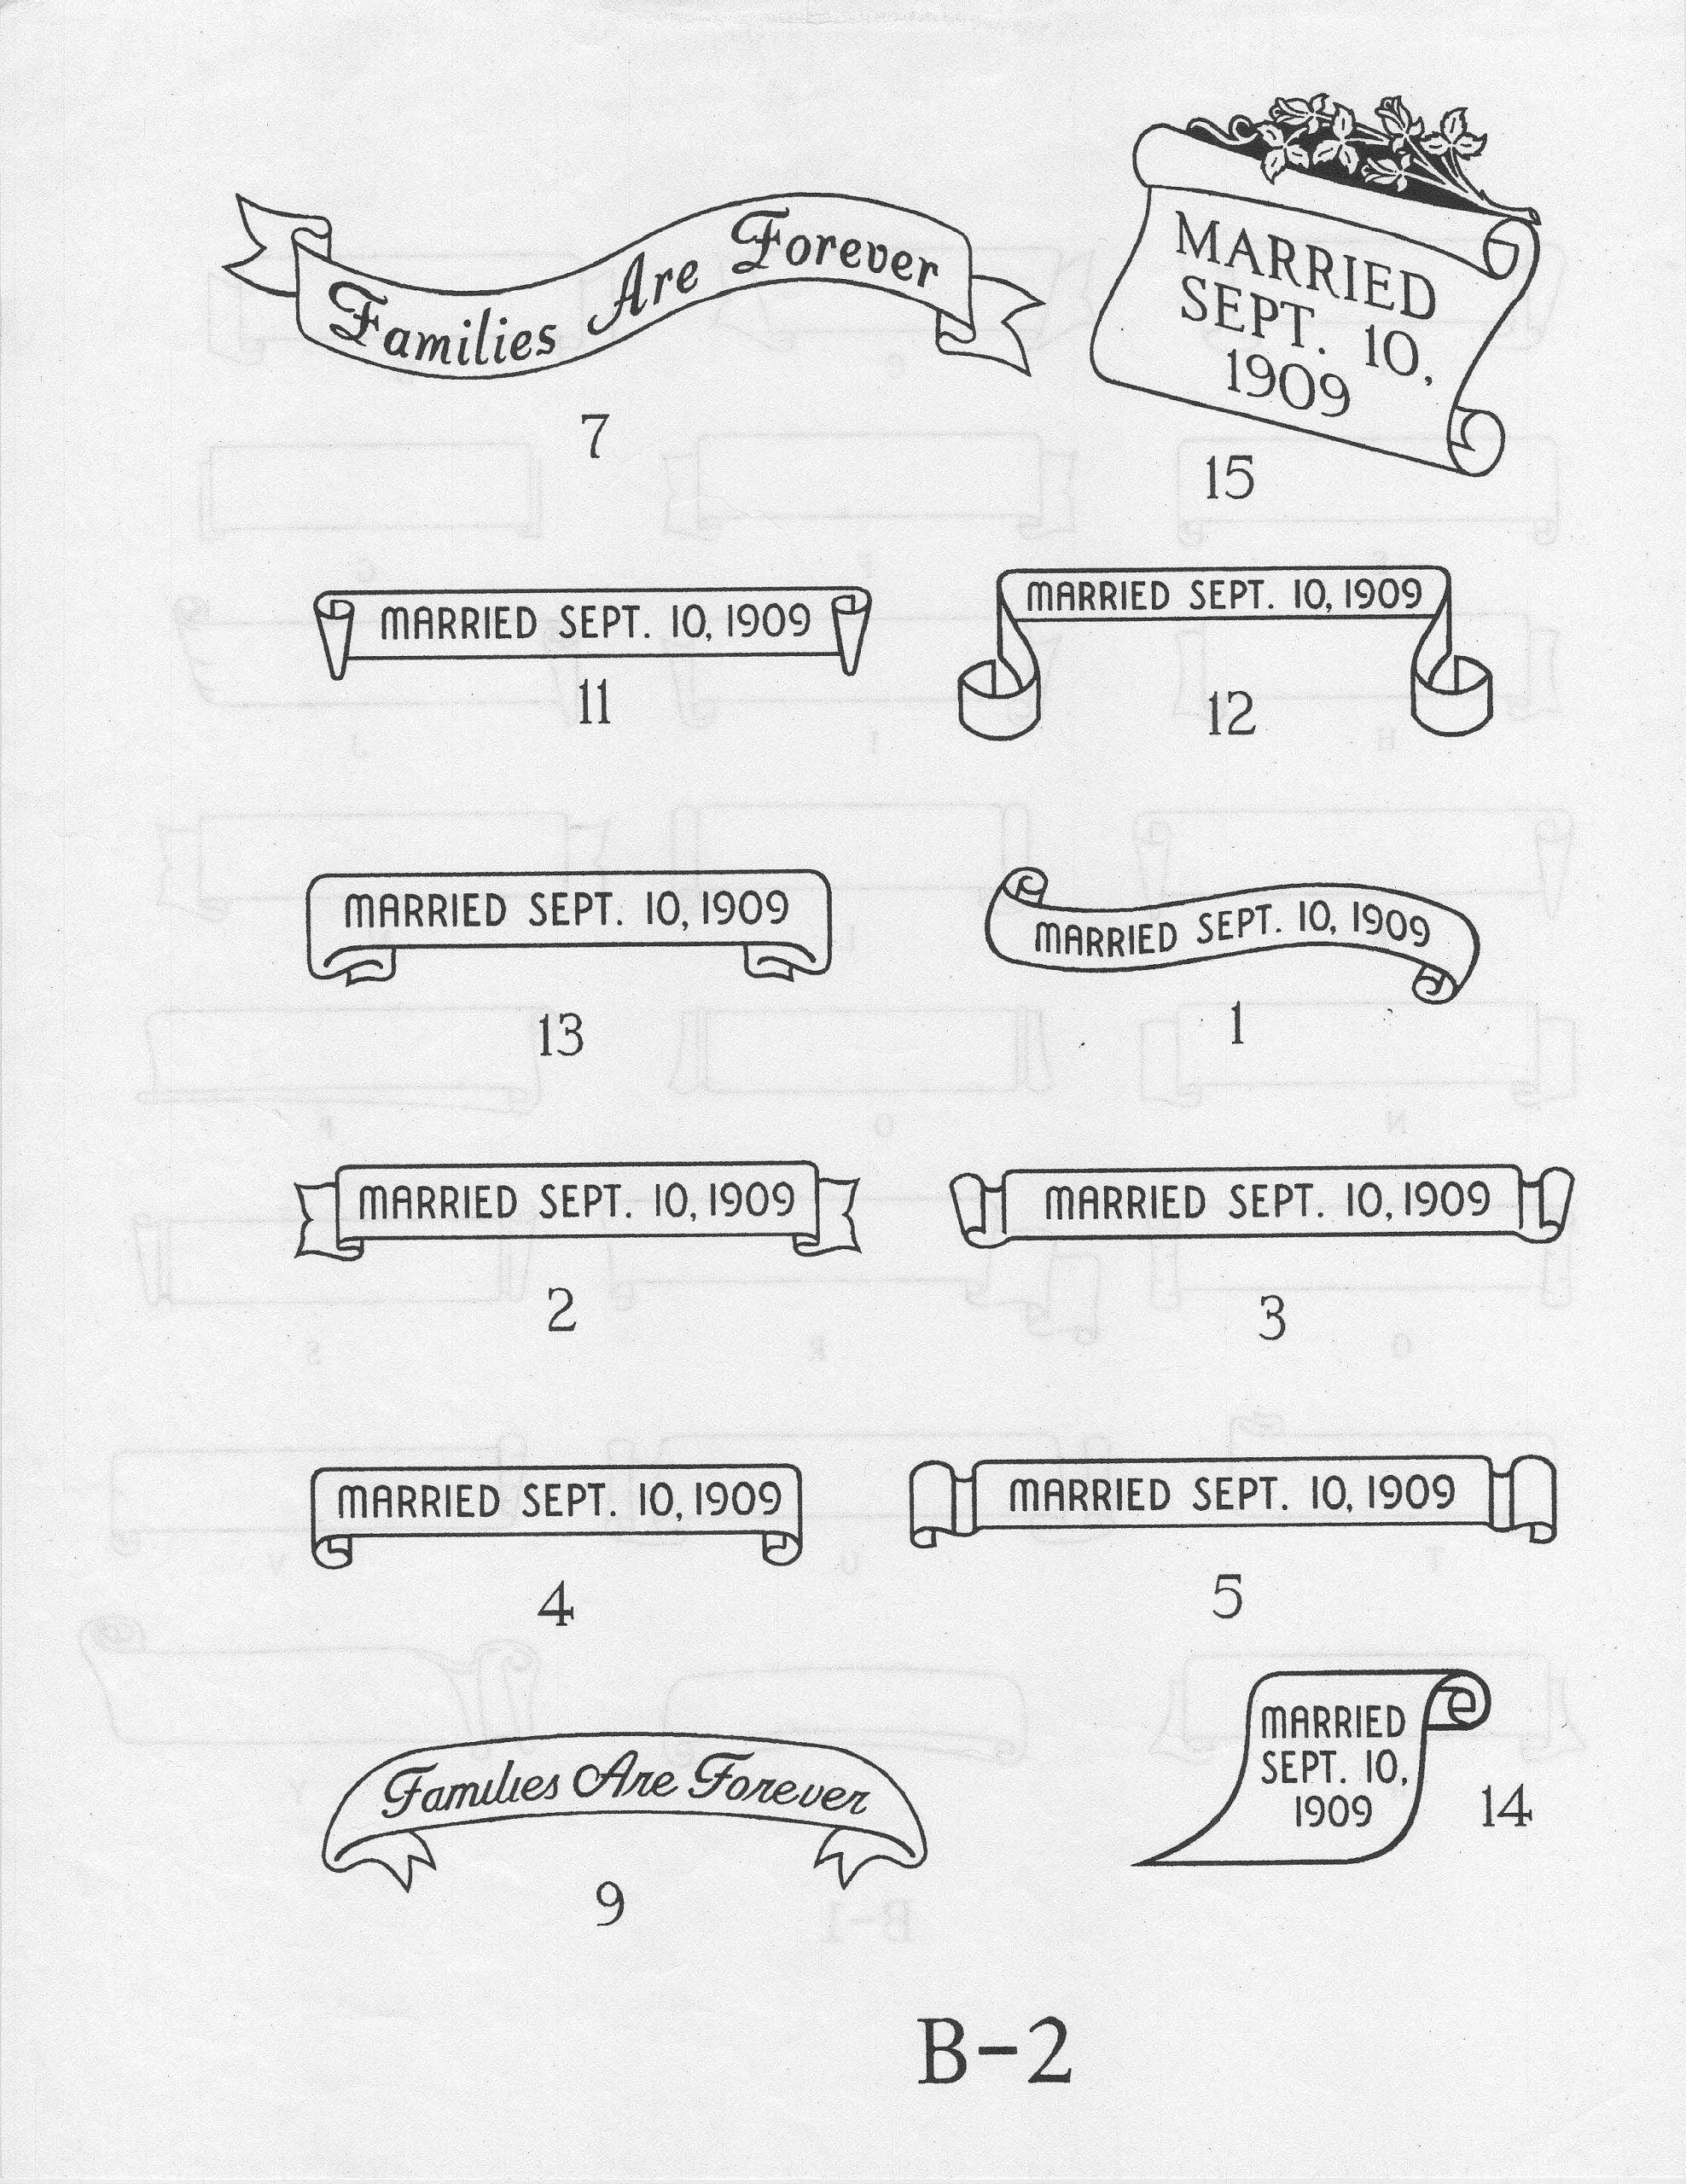 Families Are Forever
7
MARRIED
SEPT. 10,
1909
15
MARRIED SEPT. 10, 1909
11
MARRIED SEPT. 10, 1909
12
MARRIED SEPT. 10, 1909
13
MARRIED SEPT. 10, 1909
1
MARRIED SEPT. 10, 1909
2
MARRIED SEPT. 10, 1909
3
MARRIED SEPT. 10, 1909
4
MARRIED SEPT. 10, 1909
5
Families Are Forever
9
MARRIED
SEPT. 10,
1909
14
B-2